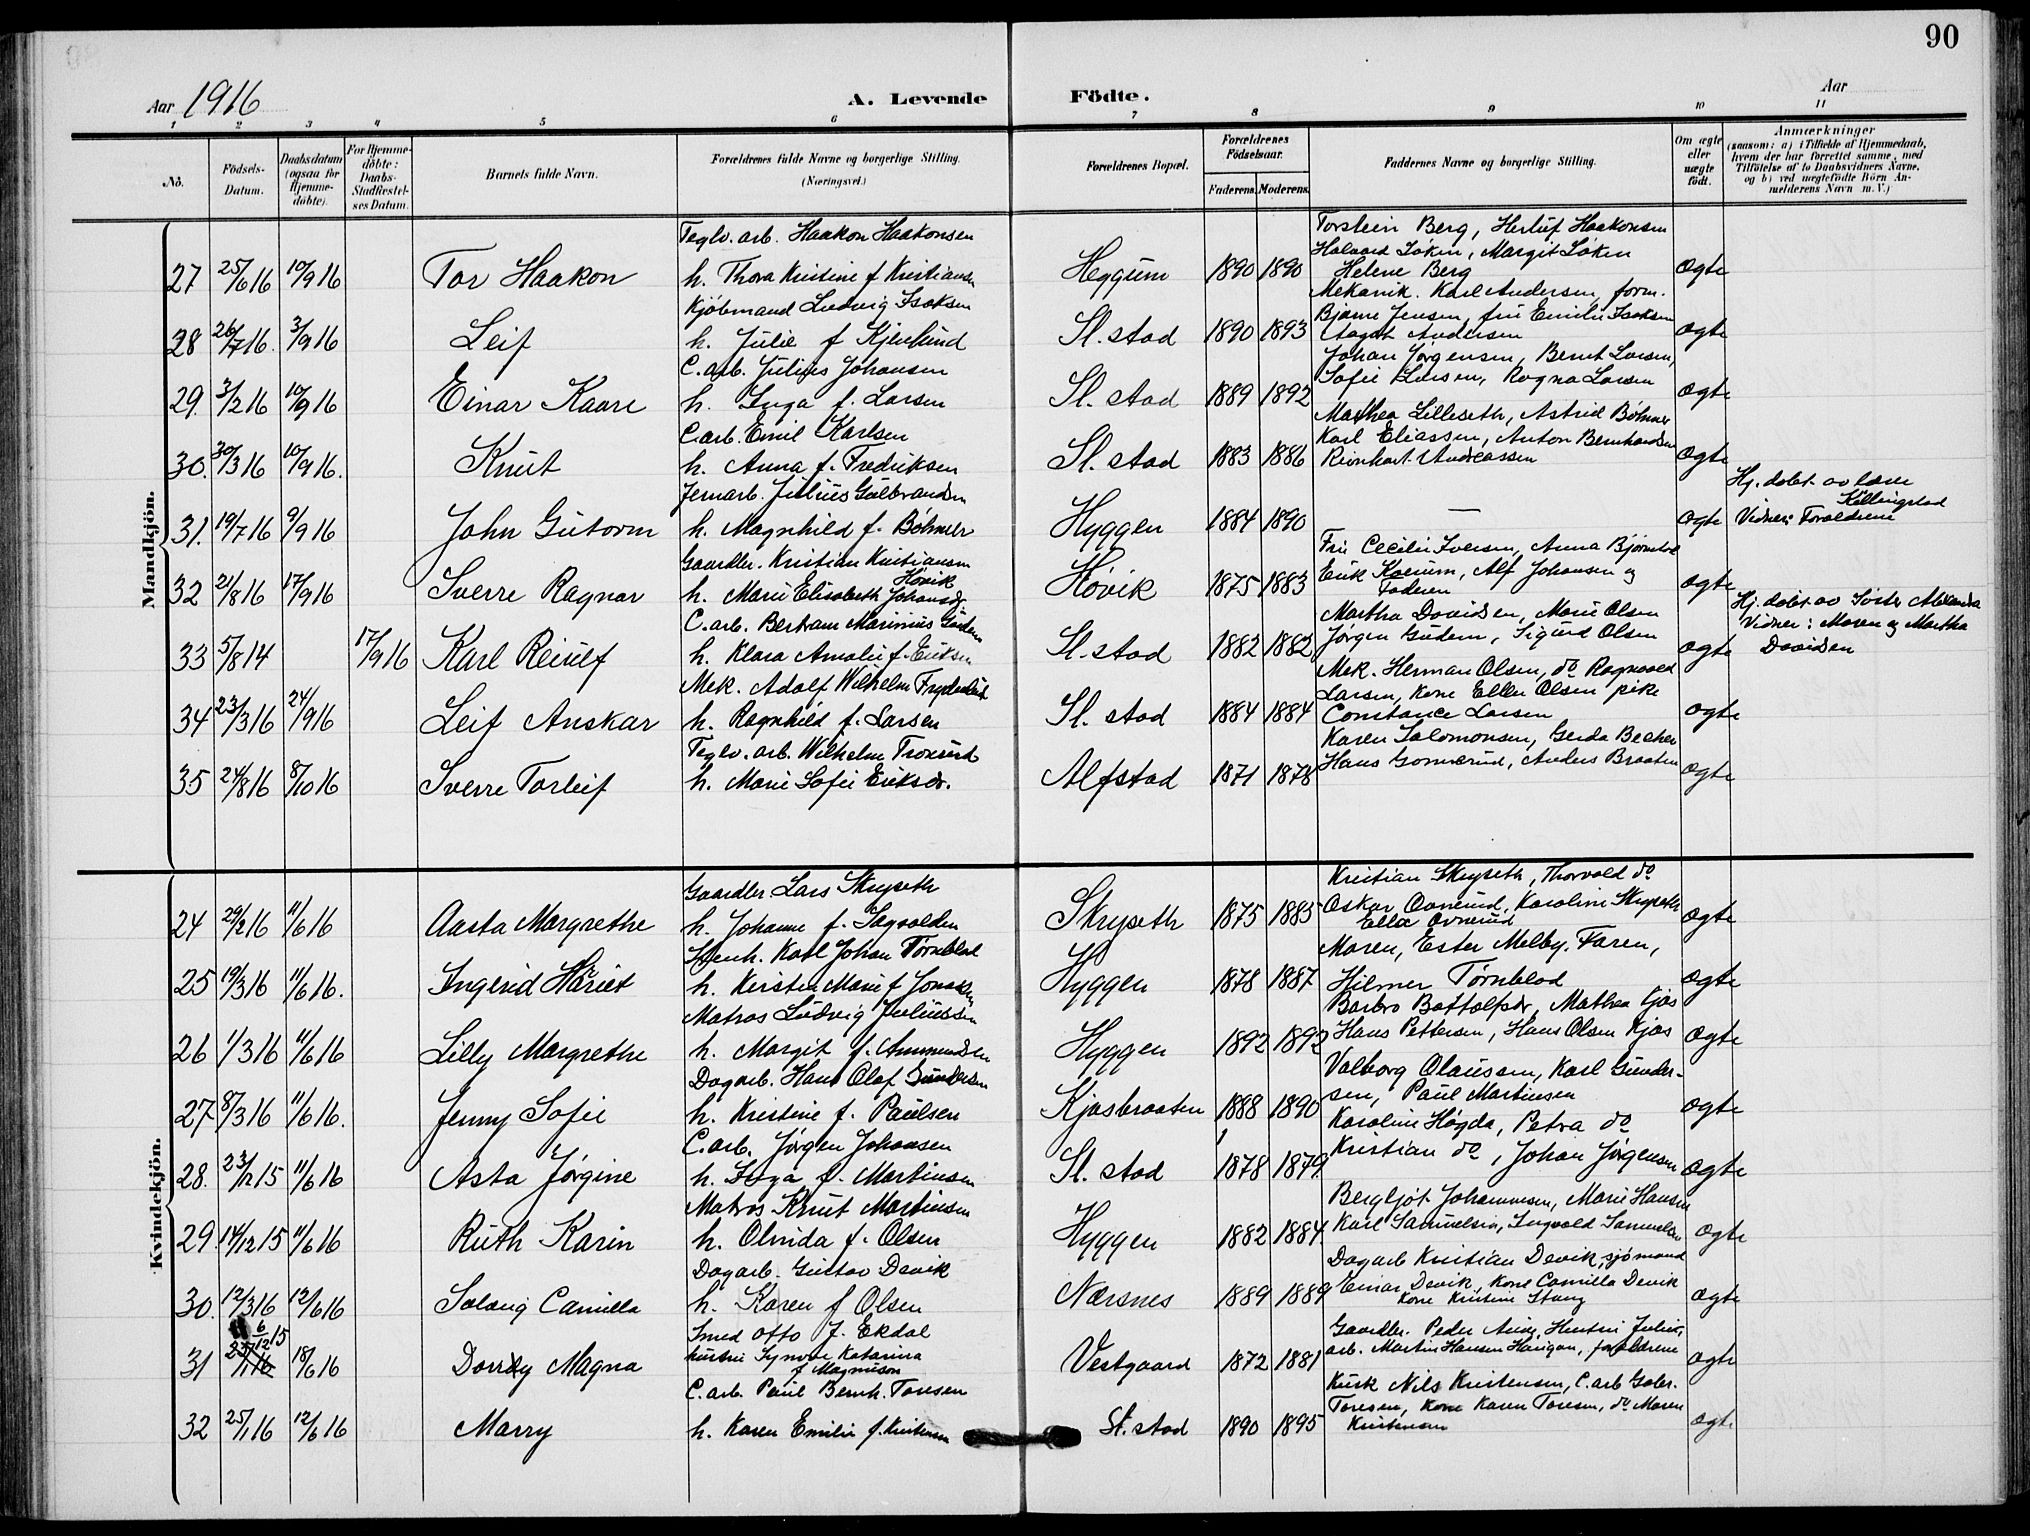 90
Aar 1916
A. Levende Födte.
Aar
1 2 3 4 5 6 7 8 9 10 11
No.
Födsels-Datum.
Daabsdatum (ogsaa for Hjemme-döbte).
For Hjemme-döbte: Daabs-Stadfæstel-ses Datum.
Barnets fulde Navn.
Forældrenes fulde Navne og borgerlige Stilling. (Næringsvei.)
Forældrenes Bopæl.
Forældrenes Födselsaar.
Faderens. Moderens.
Faddernes Navne og borgerlige Stilling.
Om ægte eller uægte født.
Anmærkninger
(saasom: a) i Tilfælde af Hjemmedaab, hvem der har forrettet samme, med Tilföielse af to Daabsvidners Navne, og b) ved uægtefödte Börn An-melderens Navn m. V.)
Mandkjön.
Teglv. arb. Haakon Haakonsen
Torstein Berg, Herluf Haakonsen
Halvard Löken, Margit Löken
27 25/6 16 10/9 16 Tor Haakon h. Thora Kristine f Kristiansen Heggum 1890 1890 Helene Berg ægte
Kjöbmand Ludvig Isaksen
Mekanik. Karl Andersen, form.
Bjarne Jensen, frü Emilie Isaksen
28 26/7 16. 3/9 16 Leif h. Julie f Kjenlund Sl. stad 1890 1893 Aagot Andersen ægte
C. arb. Julius Johansen
Johan Jørgensen, Bernt Larsen,
29. 3/2 16 10/9 16 Einar Kaare h. Inga f. Larsen Sl. stad 1889 1892 Sofie Larsen, Ragna Larsen ægte
C. arb. Emil Karlsen
Mathea Lilleseth, Astrid Böhmer
Karl Eliassen, Anton Bernhardsen
30. 30/3 16 10/9 16. Knut h. Anna f. Fredriksen Sl. stad 1883 1886 Reinhart Andreassen ægte
Jernarb. Julius Gulbrandsen
Hj. døbt av lærer Killingstad
31. 19/7 16 9/9 16 John Gutorm h. Magnhild f. Böhmer Hyggen 1884 1890 — ægte Vidner: Foreldrene
Gaardbr. Kristian Kristiansen Høvik
Fru Cecilie Iversen, Anna Bjørnstad
32 21/8 16 17/9 16 Sverre Ragnar h. Marie Elisabeth Johansdr. Høvik 1875 1883 Erik Kverum, Alf Johansen og Faderen ægte
C. arb. Bertram Marinius Gudem
Martha Davidsen, Marie Olsen
Hj. døbt av Søster Alexandra
33 5/8 14 17/9 16 Karl Reiulf h. Klara Amalie f. Eriksen Sl. stad 1882 1882 Jørgen Gudem, Sigurd Olsen ægte Vidner: Maren og Martha Davidsen
Mek. Adolf Wilhelm
Mek. Herman Olsen, do Ragnvald
Larsen, Kone Ellen Olsen pike
34 23/3 16 24/9 16 Leif Anskar h. Ragnhild f. Larsen Sl. stad 1884 1884 Constance Larsen ægte
Teglv. arb. Wilhelm Tronrud
Karen Salomonsen, Gerda Becher
35 24/8 16 8/10 16 Sverre Torleif h. Marie Sofie Eriksdr. Alfstad 1871 1878 Hans Gomnerud, Anders Braaten ægte
Kvindekjön.
Gaardbr Lars Skryseth
Kristian Skryseth, Thorvald do
24 29/2 16 11/6 16 Aasta Margrethe h. Johanne f. Sagvolden Skryseth 1875 1885 Oskar Ovnerud, Karoline Skryseth Ella Ovnerud ægte
Stenh. Karl Johan Tørnblad
Maren, Ester Melby. Faren,
25 19/3 16 11/6 16. Ingerid Häriet h. Kirsten Marie f Jonassen Hyggen 1878 1887 Hilmer Tørnblad ægte
Matros Ludvig Juliussen
Barbro Battolfsdr, Mathea Kjos
26 1/3 16 11/6 16 Lilly Margrethe h. Margit f. Ammundsen Hyggen 1892 1892 Hans Pettersen, Hans Olsen Kjos ægte
Dagarb. Hans Olaf Gundersen
Valborg Olaussen, Karl Gunder-
27 8/3 16 11/6 16. Jenny Sofie h. Kristine f. Paulsen Kjosbraaten 1888 1890 sen, Paul Martinsen ægte
C. arb. Jørgen Johansen
Karoline Høgda, Petra do
28. 23/12 15 11/6 16 Asta Jørgine h. Inga f. Martinsen Sl. stad 1878 1879. Kristian do, Johan Jørgensen ægte
Matros Knut Martinsen
Bergljot Johannesen, Marie Hansen
29. 14/12 15 11/6 16 Ruth Karin h. Olinda f. Olsen Hyggen 1882 1884 Karl Samuelsen, Ingvald Samuelsen ægte
Dagarb. Gustav Devik
Dagarb Kristian Devik, sjömand
30. 12/3 16 12/6 16 Solveig Camilla h. Karen f Olsen Nærsnes 1889 1889 Einar Devik, Kone Camilla Devik Kone Kristine Stang ægte
Smed Otto J. Ekdal
Gaardbr. Peder
31 6/12 15 18/6 16 Dorrdy Magna hustru Synøve Katarina f Magnuson Vestgaard 1872 1881 arb. Martin Hansen Haugan, foreldrene ægte
C. arb. Paul Bernh. Toresen
Kusk Nils Kristensen, C. arb Gabr.
Toresen, Kone Karen Toresen, do Maren
32 25/1 16 12/6 16 Marry h. Karen Emilie f. Kristensen Sl. stad 1890 1895 Kristensen ægte